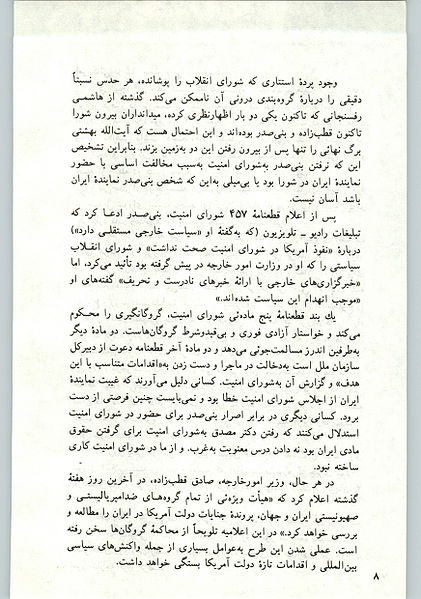 وجود پردهٔ استتاری که شورای انقلاب را پوشانده، هر حدس نسبتاً
دقیقی را دربارهٔ گروه‌بندی درونی آن ناممکن می‌کند. گذشته از هاشمی
رفسنجانی که تاکنون یکی دو بار اظهارنظری کرده، میدانداران بیرون شورا
تاکنون قطب‌زاده و بنی‌صدر بوده‌اند و این احتمال هست که آیت‌الله بهشتی
برگ نهائی را تنها پس از بیرون رفتن این دو به‌زمین بزند. بنابراین تشخیص
این که نرفتن بنی‌صدر به‌شورای امنیت به‌سبب مخالفت اساسی با حضور
نمایندهٔ ایران در شورا بود یا بی‌میلی به‌این که شخص بنی‌صدر نمایندهٔ ایران
باشد آسان نیست.
پس از اعلام قطعنامهٔ ۴۵۷ شورای امنیت، بنی‌صدر ادعا کرد که
تبلیغات رادیو ــ تلویزیون (که به‌گفتهٔ او «سیاست خارجی مستقلی دارد»)
دربارهٔ «نفوذ آمریکا در شورای امنیت صحت نداشت» و شورای انقلاب
سیاستی را که او در وزارت امور خارجه در پیش گرفته بود تأیید می‌کرد، اما
«خبرگزاری‌های خارجی با ارائهٔ خبرهای نادرست و تحریف» گفته‌های او
«موجب انهدام این سیاست شده‌اند.»
یك بند قطعنامهٔ پنج ماده‌ئی شورای امنیت، گروگانگیری را محکوم
می‌کند و خواستار آزادی فوری و بی‌قیدوشرط گروگان‌هاست. دو مادهٔ دیگر
به‌طرفین اندرز مسالمت‌جوئی می‌دهد و دو مادهٔ آخر قطعنامه دعوت از دبیرکل
سازمان ملل است به‌دخالت در ماجرا و دست زدن به«اقدامات متناسب با این
هدف» و گزارش آن به‌شورای امنیت. کسانی دلیل می‌آورند که غیبت نمایندهٔ
ایران از اجلاس شورای امنیت خطا بود و نمی‌بایست چنین فرصتی از دست
برود. کسانی دیگری در برابر اصرار بنی‌صدر برای حضور در شورای امنیت
استدلال می‌کنند که رفتن دکتر مصدق به‌شورای امنیت برای گرفتن حقوق
مادی ایران بود نه دادن درس معنویت به‌غرب. و از ما در شورای امنیت کاری
ساخته نبود.
در هر حال، وزیر امورخارجه، صادق قطب‌زاده، در آخرین روز هفتهٔ
گذشته اعلام کرد که «هیأت ویژه‌ئی از تمام گروه‌های ضدامپریالیستی و
صهیونیستی ایران و جهان، پروندهٔ جنایات دولت آمریکا در ایران را مطالعه و
بررسی خواهد کرد.» در این اعلامیه تلویحاً از محاکمهٔ گروگان‌ها سخن رفته
است. عملی شدن این طرح به‌عوامل بسیاری از جمله واکنش‌های سیاسی
بین‌المللی و اقدامات تازهٔ دولت آمریکا بستگی خواهد داشت.
۸